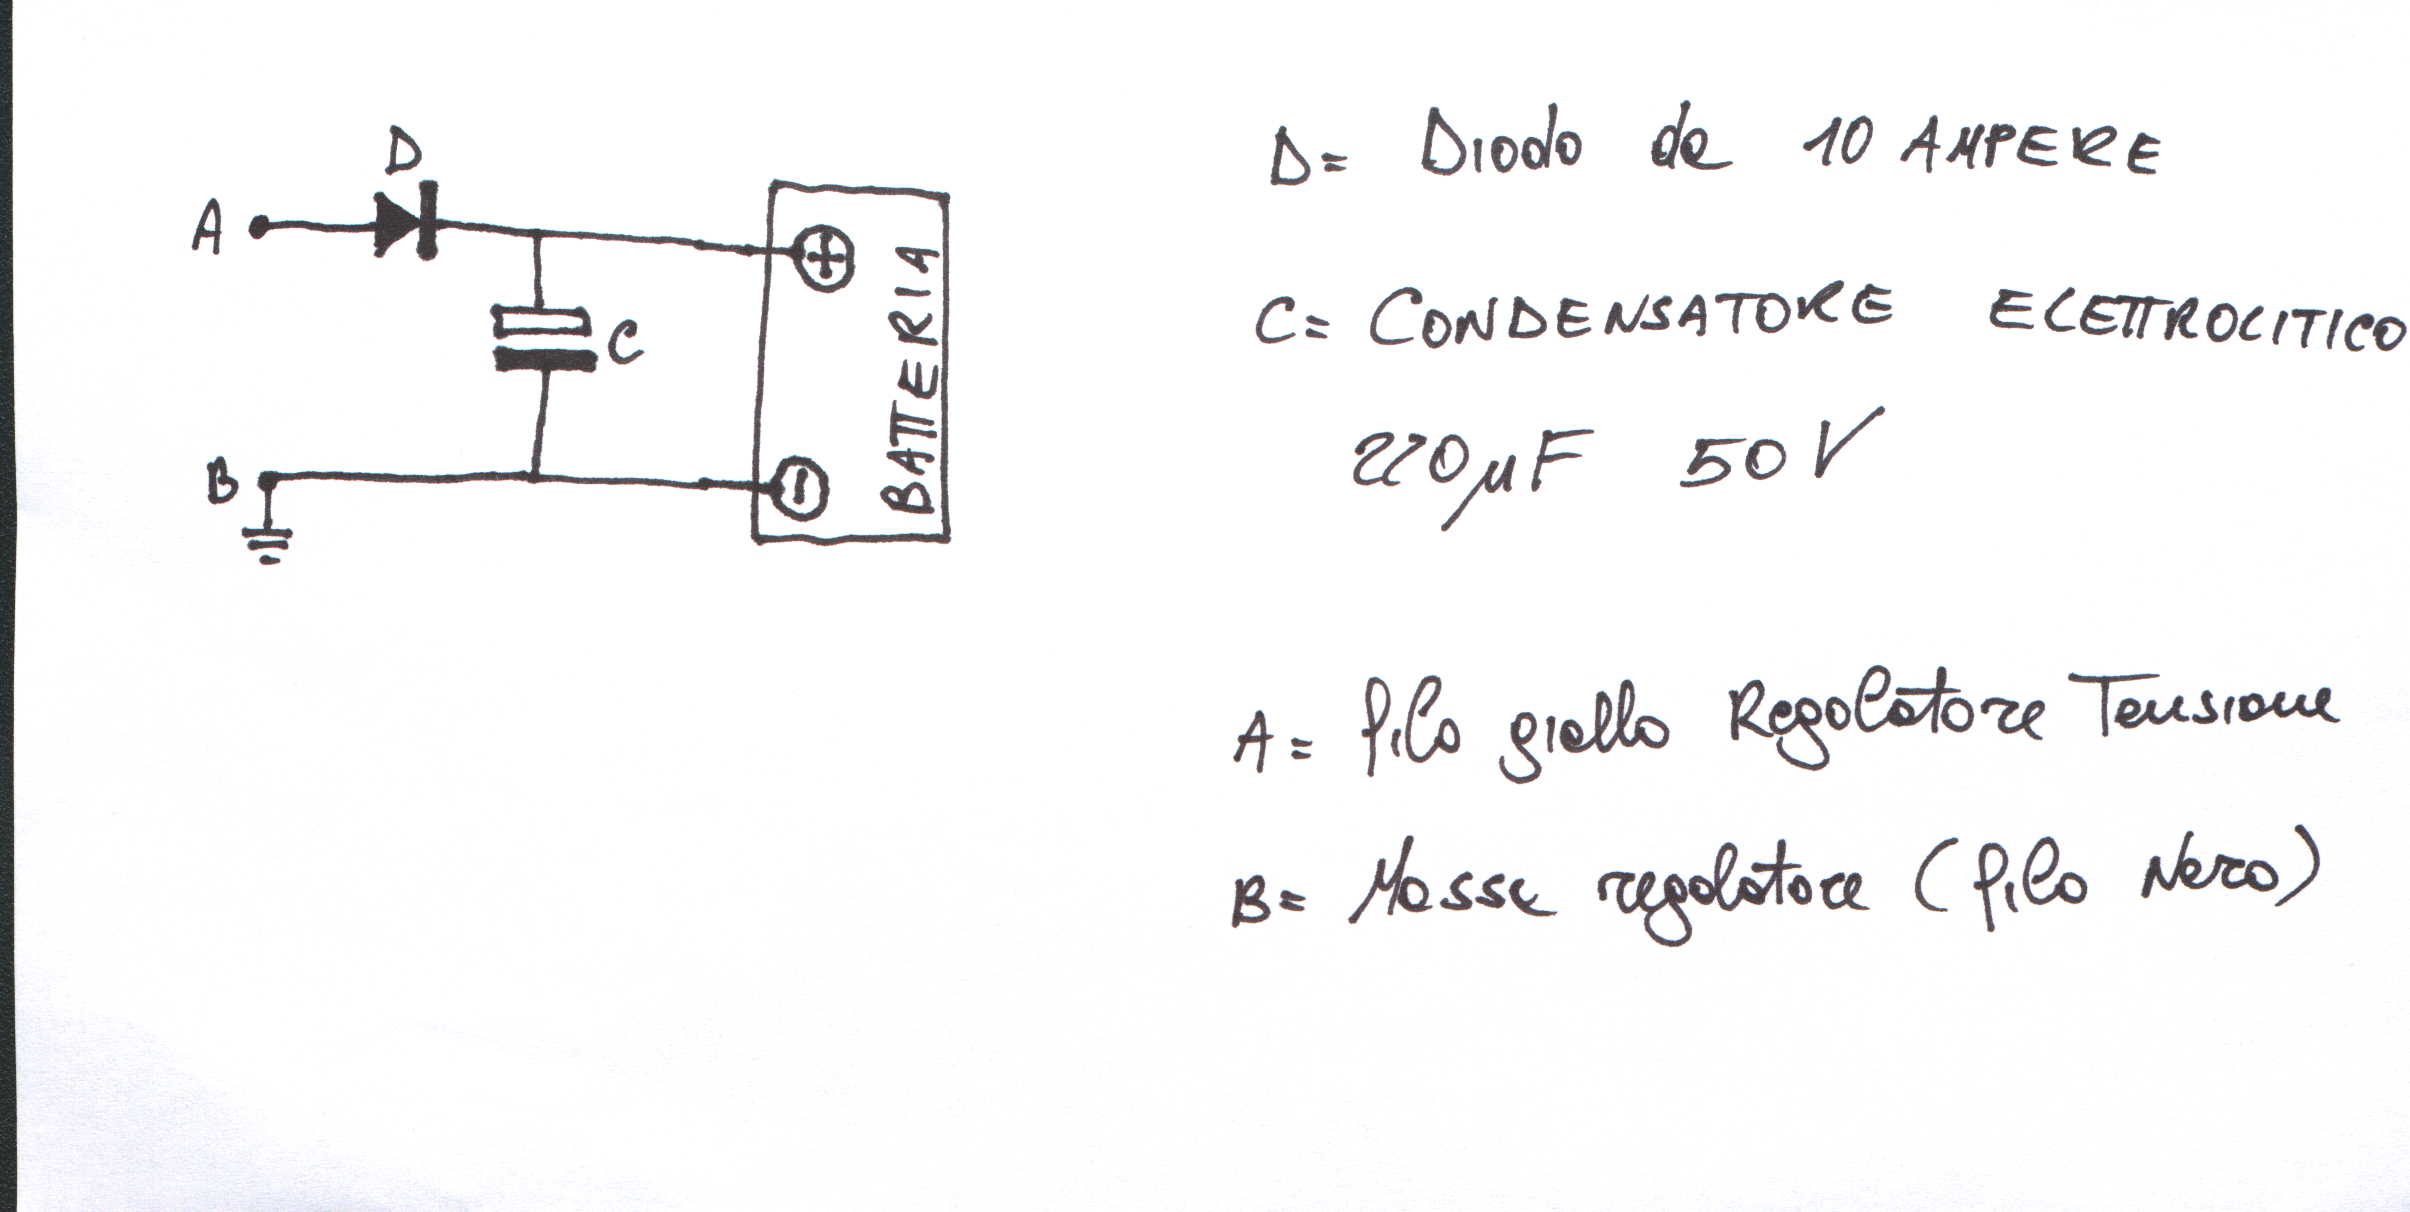 D
A
C
B
+
-
BATTERIA
D= Diodo da 10 AMPERE
C= CONDENSATORE ELETTROLITICO
220µF 50V
A= filo giallo Regolatore Tensione
B= Massa regolatore (filo Nero)